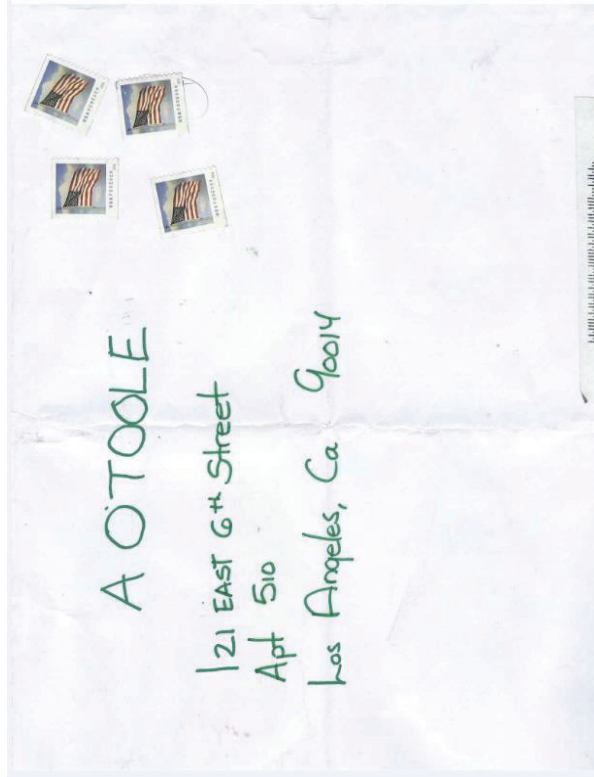 A O'TOOLE
121 EAST 6th Street
Apt 510
Los Angeles, Ca 90014